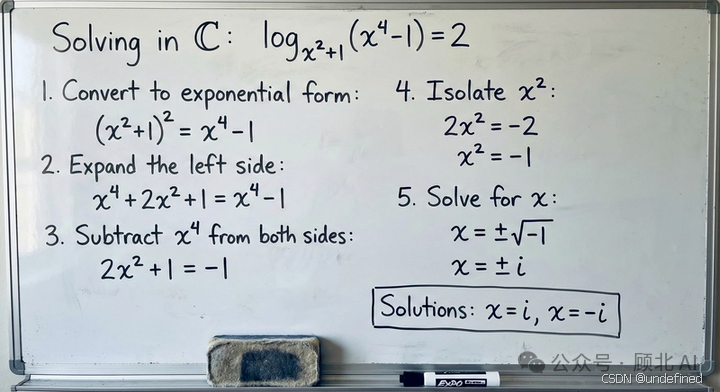 Solving in ℂ: log_{x²+1}(x⁴-1)=2
1. Convert to exponential form:
(x²+1)² = x⁴-1
2. Expand the left side:
x⁴+2x²+1=x⁴-1
3. Subtract x⁴ from both sides:
2x²+1=-1
4. Isolate x²:
2x²=-2
x²=-1
5. Solve for x:
x=±√-1
x=±i
Solutions: x=i, x=-i
EXPO
公众号·顾北 AI
CSDN @undefined